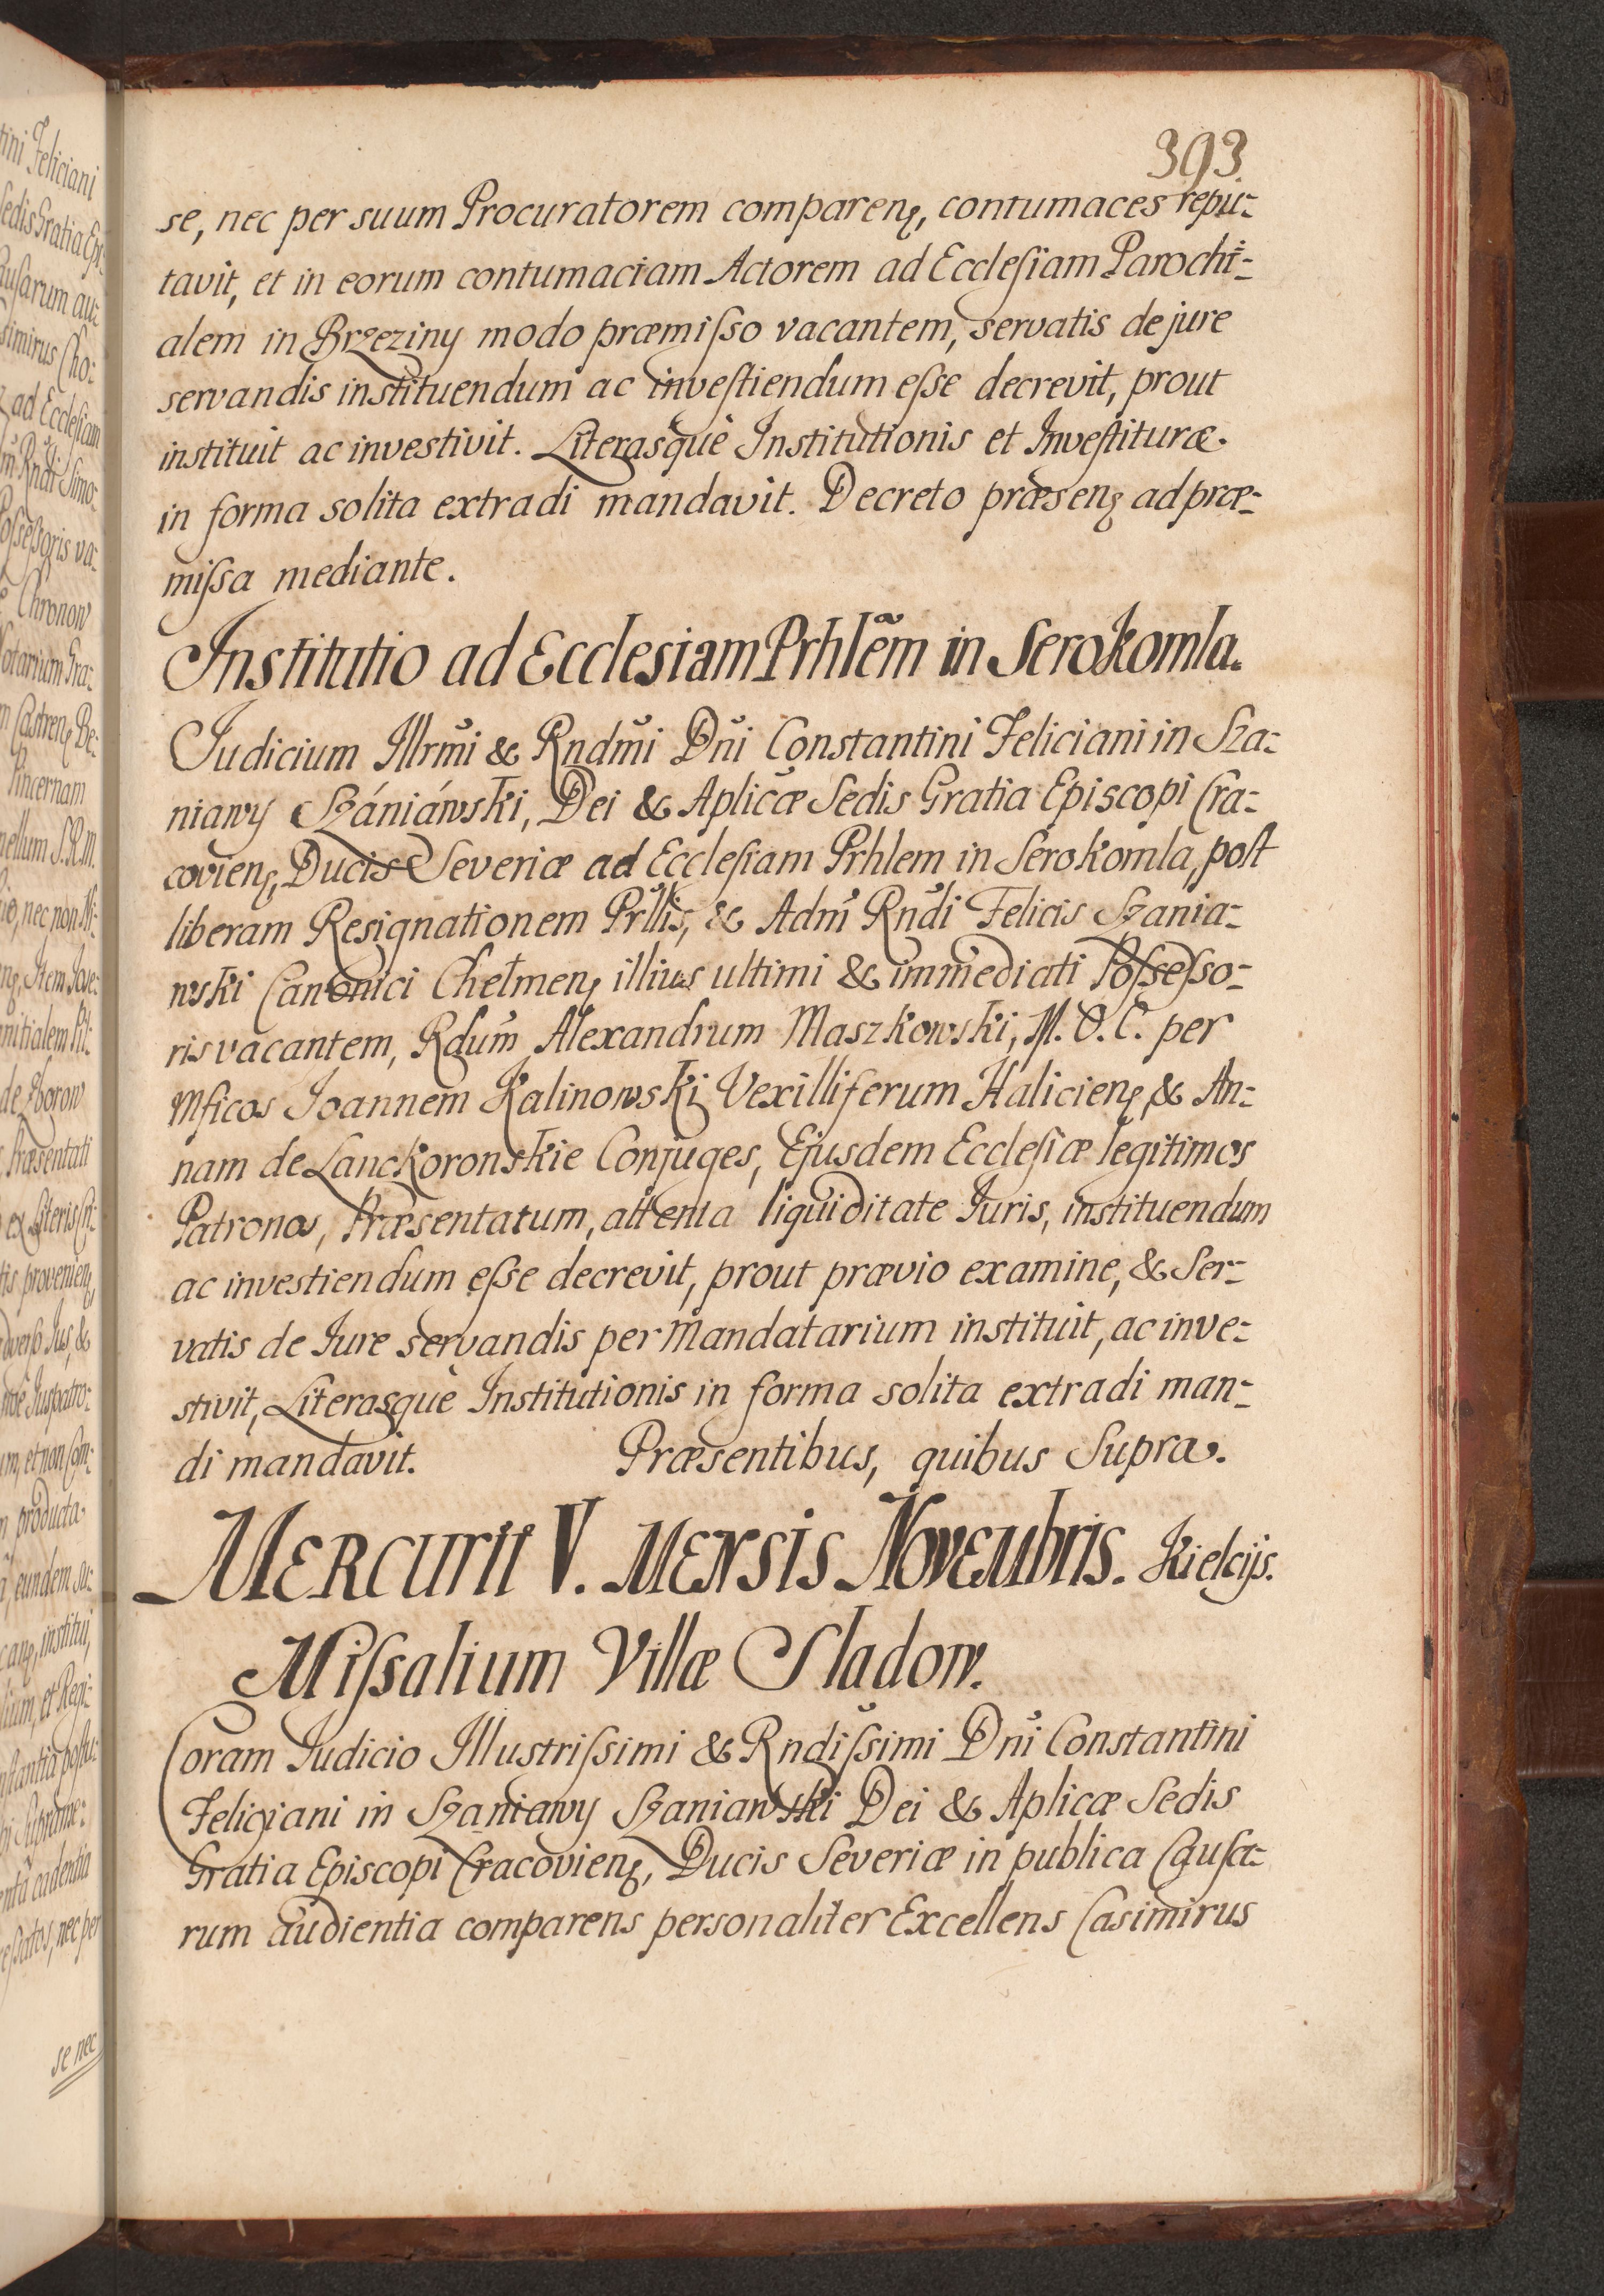 393
se, nec per suum Procuratorem compareñ, contumaces repu-
tavit, et in eorum contumaciam Actorem ad Ecclesiam Parochi-
alem in Brzeziny modo præmisso vacantem, servatis de jure
servandis instituendum ac investiendum esse decrevit, prout
instituit ac investivit. Literasquè Institutionis et Investituræ.
in forma solita extradi mandavit. Decreto præsenꝫ ad præ-
missa mediante.
Institutio ad Ecclesiam Prhlem̃ in Serokomla.
Judicium Illrmi & Rndmi Dni Constantini Feliciani in Sza-
niawy Szániáwski, Dei & Aplicæ Sedis Gratia Episcopi Cra-
covienꝫ, Ducis Severiæ ad Ecclesiam Prhlem in Serokomla, post
liberam Resignationem Prllis, & Adm Rndi Felicis Szania-
wski Canonici Chełmenꝫ illius ultimi & immediati Possesso-
ris vacantem, Rdum Alexandrum Maszkowski, M. O. C. per
Mficos Joannem Kalinowski Vexilliferum Halicienꝫ, & An-
nam de Lanckoronskie Conjuges, Ejusdem Ecclesiæ legitimos
Patronos, Præsentatum, attenta liquiditate Juris, instituendum
ac investiendum esse decrevit, prout prævio examine, & Ser-
vatis de Jure servandis per Mandatarium instituit, ac inve-
stivit, Literasquè Institutionis in forma solita extradi man-
di mandavit. Præsentibus, quibus Supra.
Mercurii V. Mensis Novembris. Kielcijs.
Missalium Villæ Sladow.
Coram Judicio Illustrissimi & Rndissimi Dni Constantini
Feliciani in Szaniawy Szaniawski Dei & Aplicæ Sedis
Gratia Episcopi Cracovienꝫ, Ducis Severiæ in publica Causa-
rum audientia comparens personaliter Excellens Casimirus